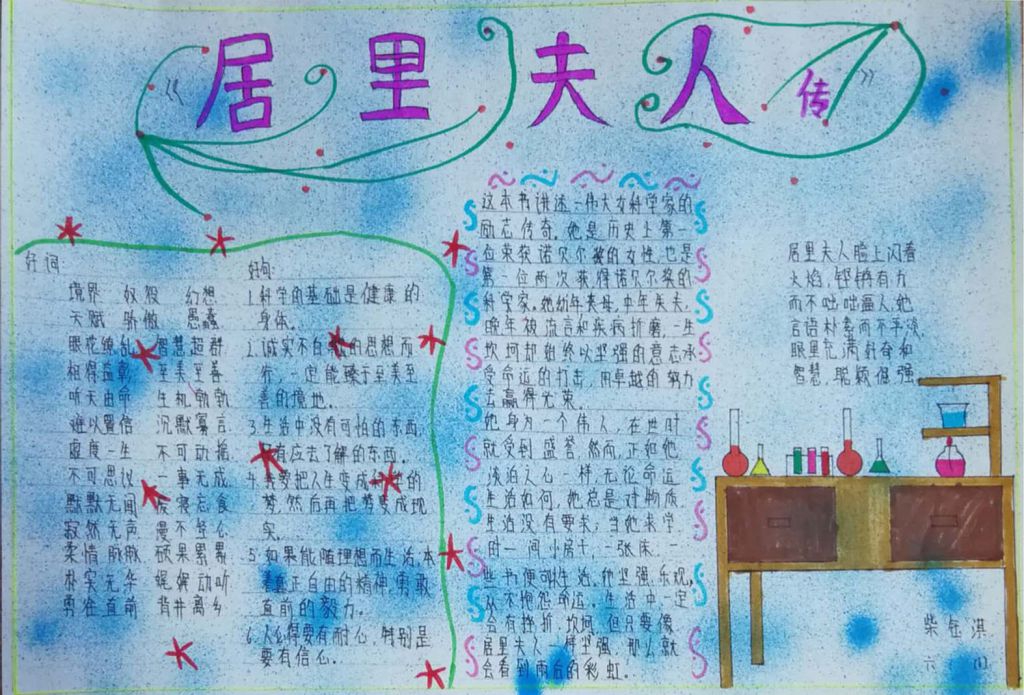 《居里夫人传》
好词:
境界 奴役 幻想
天赋 骄傲 愚蠢
眼花缭乱 智慧超群
相得益彰 至美至善
听天由命 生机勃勃
难以置信 沉默寡言
虚度一生 不可动摇
不可思议 一事无成
默默无闻 废寝忘食
寂然无声 漫不经心
柔情脉脉 硕果累累
朴实无华 娓娓动听
勇往直前 背井离乡
好句:
1.科学的基础是健康的
身体。
2.诚实不自欺的思想而
行,一定能臻于至美至
善的境地。
3.生活中没有可怕的东西,
只有应去了解的东西。
4.我要把人生变成科学的
梦,然后再把梦变成现
实。
5.如果能随理想而生活,本
着真正自由的精神,勇敢
直前的毅力。
6.人必得要有耐心,特别是
要有信心。
这本书讲述一伟大女科学家的
励志传奇。她是历史上第一
位荣获诺贝尔奖的女性,也是
第一位两次获得诺贝尔奖的
科学家。她幼年丧母,中年失夫,
晚年被流言和疾病折磨,一生
坎坷却始终以坚强的意志承
受命运的打击,用卓越的努力
去赢得光荣。
她身为一个伟人,在世时
就受到盛誉。然而,正如她
淡泊之心一样,无论命运
生活如何,她总是对物质
生活没有要求;当她求学
时一间小房子,一张床,一
些书便可生活。她坚强、乐观,
从不抱怨命运。生活中一定
会有挫折,坎坷,但只要像
居里夫人一样坚强,那么就
会看到雨后的彩虹。
居里夫人脸上闪着
火焰,铿锵有力
而不咄咄逼人,她
言语朴素而不平淡,
眼里充满好奇和
智慧,聪颖倔强
柴钰淇
六 (1)